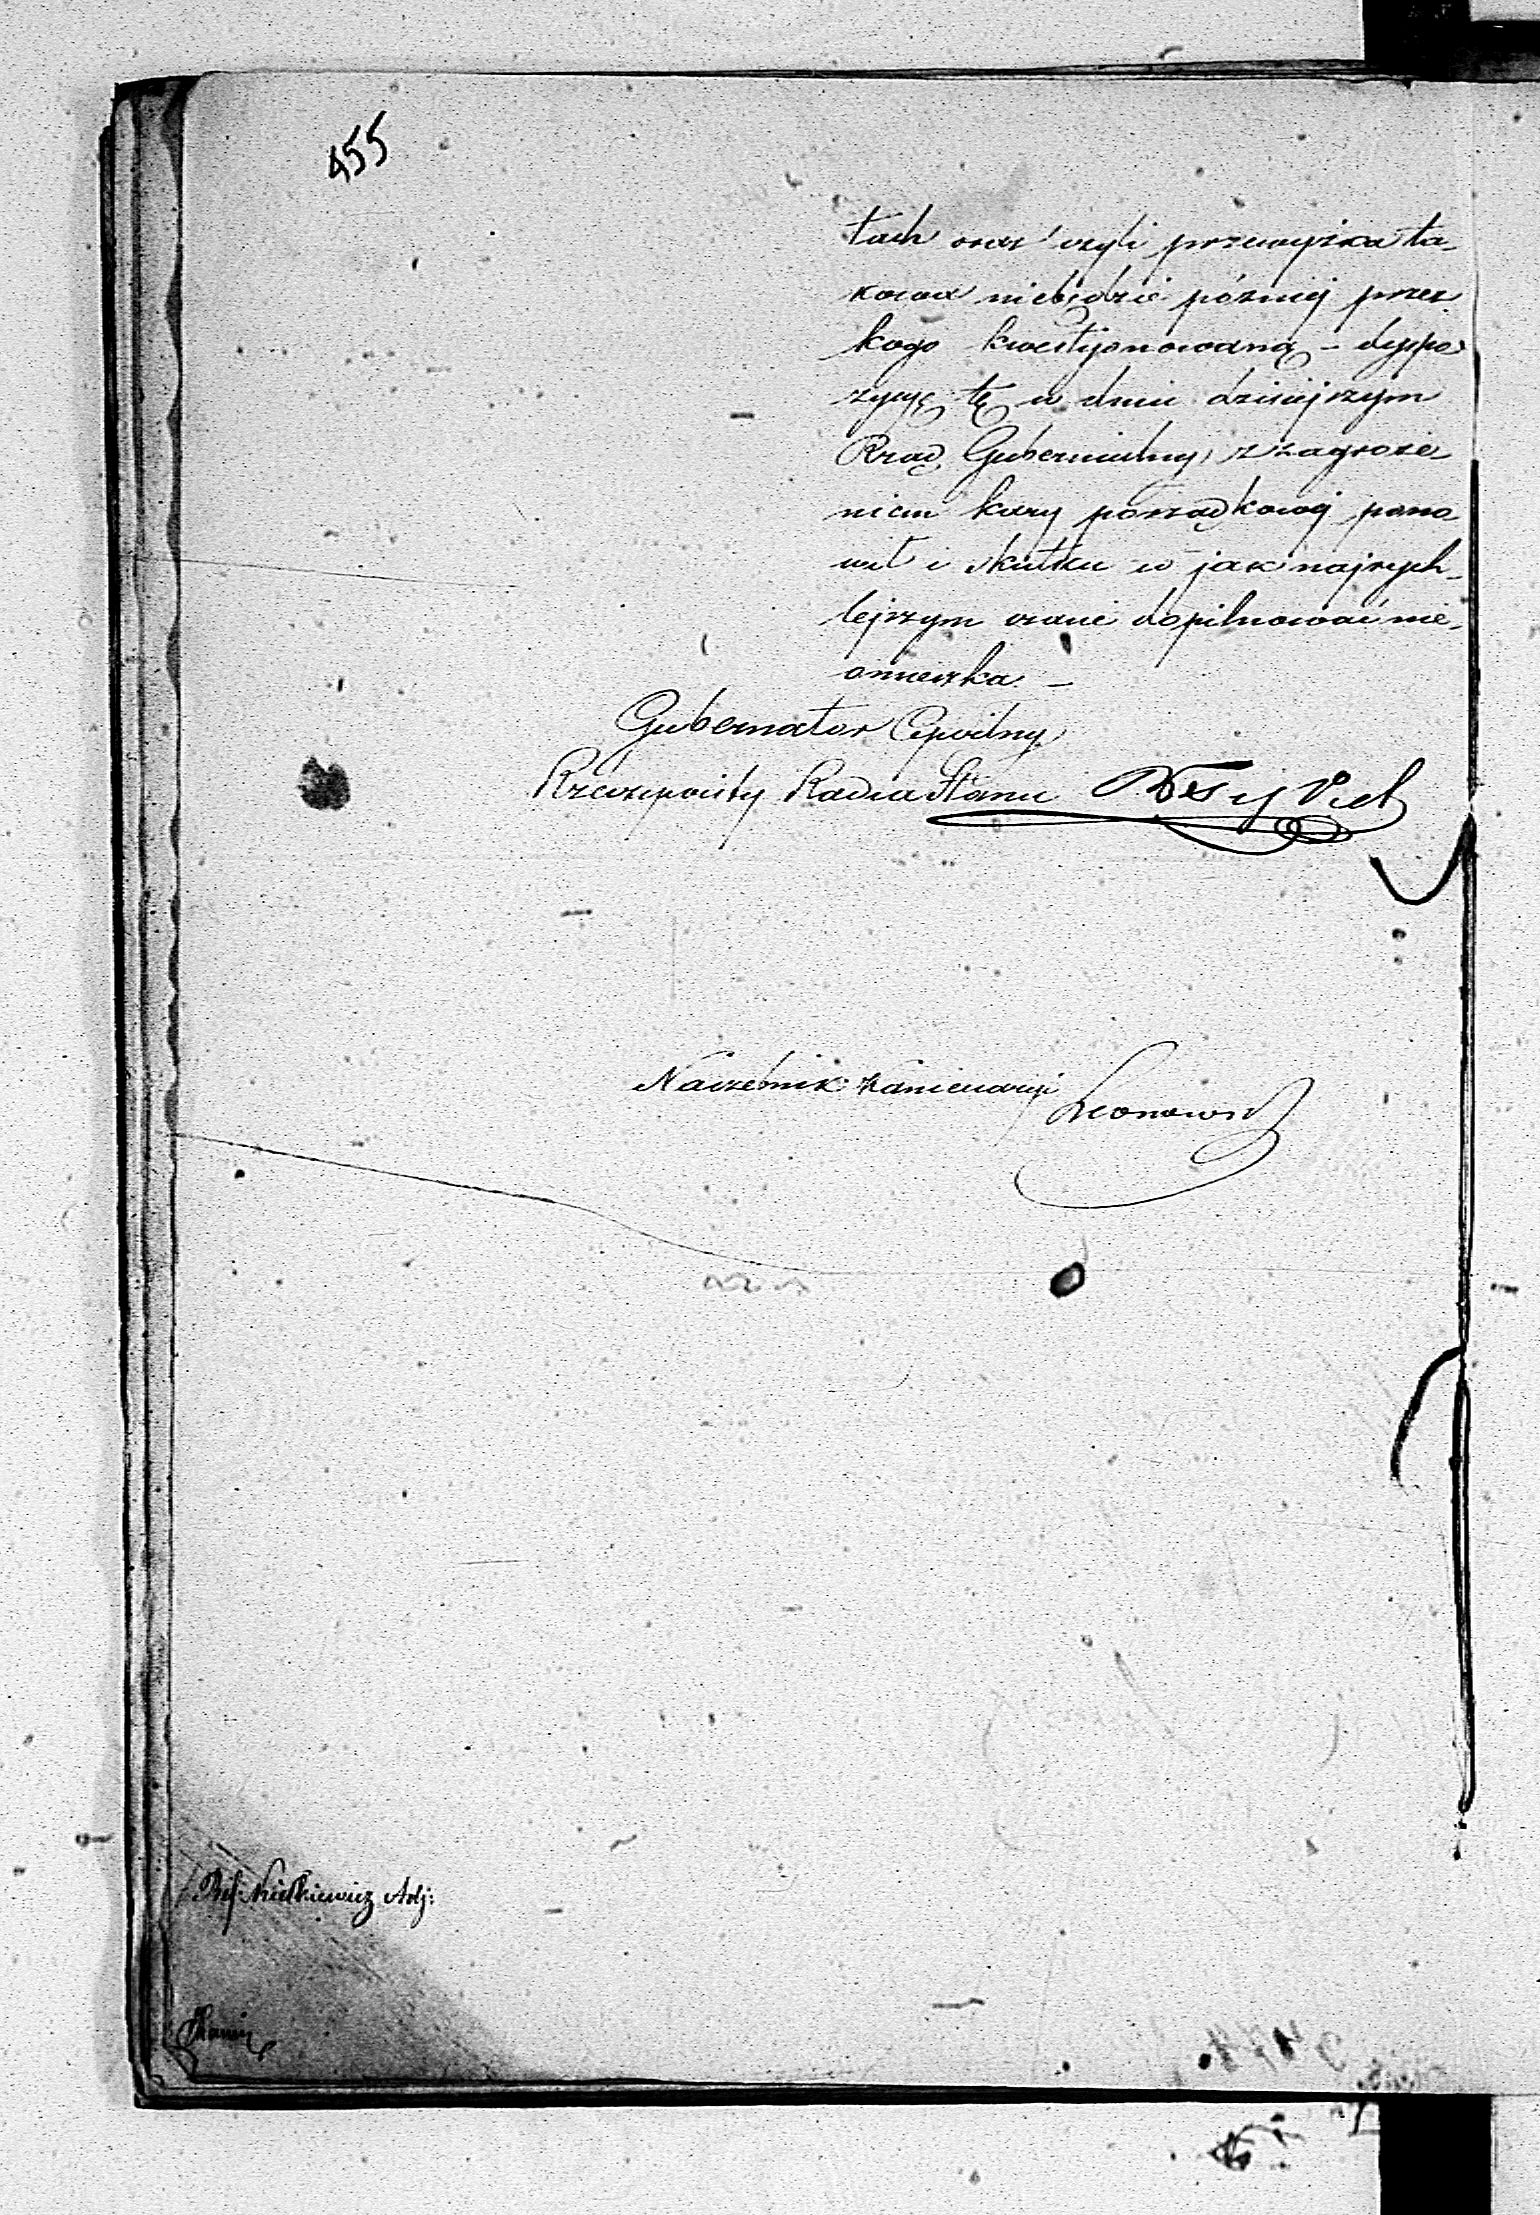 455
tach oraz czyli przewyżka ta-
kowa niebędzie później przez
kogo kwestyonowaną – dyspo-
zycyę tę w dniu dzisiejszym
Rząd Gubernialny z zagroże-
niem kary porządkowej pono-
wił i skutku w jak najrych-
lejszym czasie dopilnować nie-
omieszka. –
Gubernator Cywilny
Rzeczywisty Radca Stanu
Naczelnik Kancellaryi
Adj: